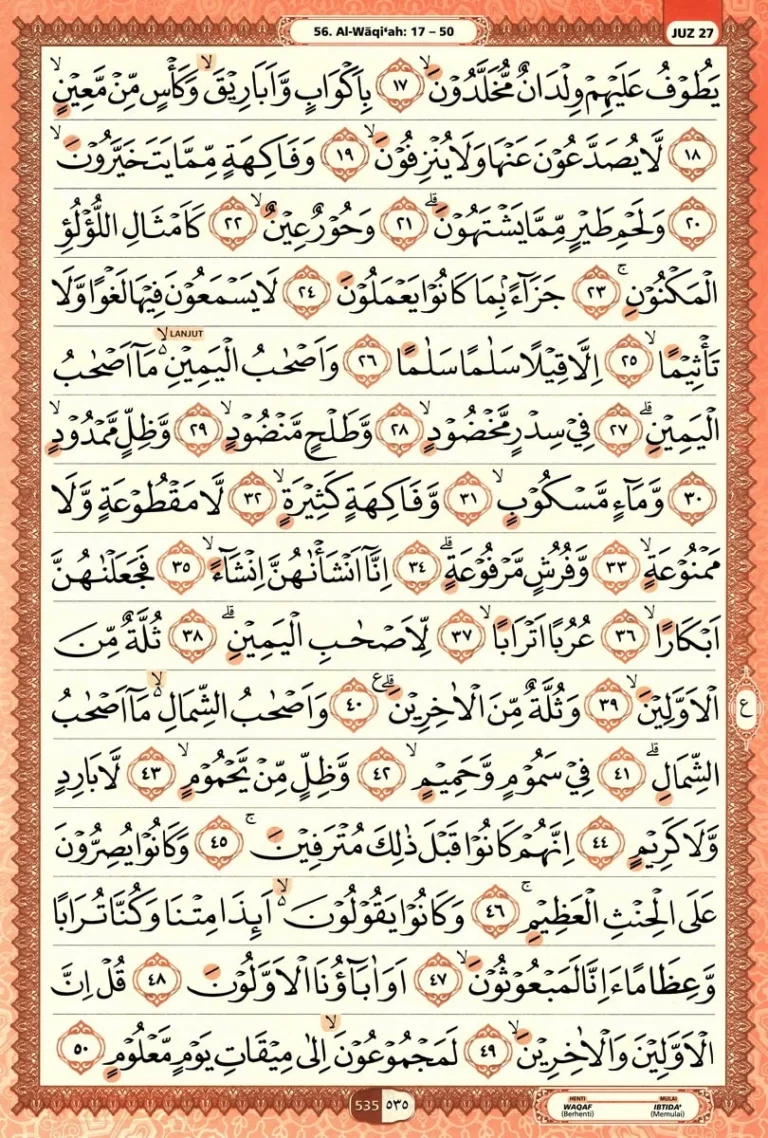 56. Al-Wāqi‘ah: 17 – 50
JUZ 27
يَطُوْفُ عَلَيْهِمْ وِلْدَانٌ مُّخَلَّدُوْنَۙ ١٧ بِاَكْوَابٍ وَّاَبَارِيْقَۙ وَكَأْسٍ مِّنْ مَّعِيْنٍۙ
١٨ لَّا يُصَدَّعُوْنَ عَنْهَا وَلَا يُنْزِفُوْنَۙ ١٩ وَفَاكِهَةٍ مِّمَّا يَتَخَيَّرُوْنَۙ
٢٠ وَلَحْمِ طَيْرٍ مِّمَّا يَشْتَهُوْنَۗ ٢١ وَحُوْرٌ عِيْنٌۙ ٢٢ كَاَمْثَالِ اللُّؤْلُؤِ
الْمَكْنُوْنِۚ ٢٣ جَزَاۤءًۢ بِمَا كَانُوْا يَعْمَلُوْنَ ٢٤ لَا يَسْمَعُوْنَ فِيْهَا لَغْوًا وَّلَا
LANJUT
تَأْثِيْمًاۙ ٢٥ اِلَّا قِيْلًا سَلٰمًا سَلٰمًا ٢٦ وَاَصْحٰبُ الْيَمِيْنِ ەۙ مَآ اَصْحٰبُ
الْيَمِيْنِۗ ٢٧ فِيْ سِدْرٍ مَّخْضُوْدٍۙ ٢٨ وَّطَلْحٍ مَّنْضُوْدٍۙ ٢٩ وَّظِلٍّ مَّمْدُوْدٍۙ
٣٠ وَّمَاۤءٍ مَّسْكُوْبٍۙ ٣١ وَّفَاكِهَةٍ كَثِيْرَةٍۙ ٣٢ لَّا مَقْطُوْعَةٍ وَّلَا
مَمْنُوْعَةٍۙ ٣٣ وَّفُرُشٍ مَّرْفُوْعَةٍۗ ٣٤ اِنَّآ اَنْشَأْنٰهُنَّ اِنْشَاۤءًۙ ٣٥ فَجَعَلْنٰهُنَّ
اَبْكَارًاۙ ٣٦ عُرُبًا اَتْرَابًاۙ ٣٧ لِّاَصْحٰبِ الْيَمِيْنِۗ ٣٨ ثُلَّةٌ مِّنَ
الْاَوَّلِيْنَۙ ٣٩ وَثُلَّةٌ مِّنَ الْاٰخِرِيْنَۗ ع ٤٠ وَاَصْحٰبُ الشِّمَالِ ەۙ مَآ اَصْحٰبُ
ع
الشِّمَالِۗ ٤١ فِيْ سَمُوْمٍ وَّحَمِيْمٍۙ ٤٢ وَّظِلٍّ مِّنْ يَّحْمُوْمٍۙ ٤٣ لَّا بَارِدٍ
وَّلَا كَرِيْمٍ ٤٤ اِنَّهُمْ كَانُوْا قَبْلَ ذٰلِكَ مُتْرَفِيْنَۚ ٤٥ وَكَانُوْا يُصِرُّوْنَ
عَلَى الْحِنْثِ الْعَظِيْمِۚ ٤٦ وَكَانُوْا يَقُوْلُوْنَ ەۙ اَىِٕذَا مِتْنَا وَكُنَّا تُرَابًا
وَّعِظَامًا ءَاِنَّا لَمَبْعُوْثُوْنَۙ ٤٧ اَوَاٰبَاۤؤُنَا الْاَوَّلُوْنَ ٤٨ قُلْ اِنَّ
الْاَوَّلِيْنَ وَالْاٰخِرِيْنَۙ ٤٩ لَمَجْمُوْعُوْنَۙ اِلٰى مِيْقَاتِ يَوْمٍ مَّعْلُوْمٍ ٥٠
535 ٥٣٥
HENTI MULAI
WAQAF IBTIDA'
(Berhenti) (Memulai)